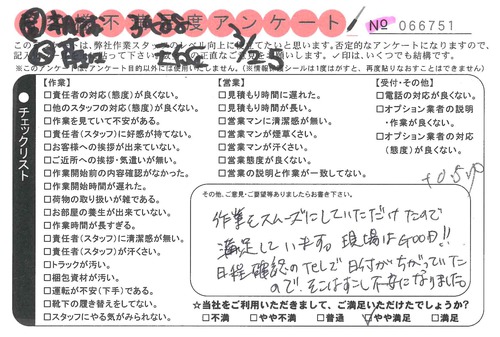 不 度アンケート
№ 066751
このアンケートは、弊社作業スタッフのレベル向上に役立てたいと思います。否定的なアンケートになりますので、
※このアンケートはアンケート目的以外には使用致しません。(※情報保護シールは1度はがすと、再度貼りなおすことはできません)
●チェックリスト
【作業】
□責任者の対応(態度)が良くない。
□他のスタッフの対応(態度)が良くない。
□作業を見ていて不安がある。
□責任者(スタッフ)に好感が持てない。
□お客様への挨拶が出来ていない。
□ご近所への挨拶・気遣いが無い。
□作業開始前の内容確認がなかった。
□作業開始時間が遅れた。
□荷物の取り扱いが雑である。
□お部屋の養生が出来ていない。
□作業時間が長すぎる。
□責任者(スタッフ)に清潔感が無い。
□責任者(スタッフ)が汗くさい。
□トラックが汚い。
□梱包資材が汚い。
□運転が不安(下手)である。
□靴下の履き替えをしてない。
□スタッフにやる気がみられない。
【営業】
□見積もり時間に遅れた。
□見積もり時間が長い。
□営業マンに清潔感が無い。
□営業マンが煙草くさい。
□営業マンが汗くさい。
□営業態度が良くない。
□営業の説明と作業が一致してない。
【受付・その他】
□電話の対応が良くない。
□オプション業者の説明
・作業が良くない。
□オプション業者の対応
(態度)が良くない。
その他、ご意見・ご要望等ありましたらお書き下さい。
作業もスムーズにしていただけたので
満足しています。現場はGOOD!!
日程確認のTELで日付がちがっていた
ので、そこはすこし不安になりました。
☆当社をご利用いただきまして、ご満足いただけたでしょうか?
□不満 □やや不満 □普通 ☑やや満足 □満足